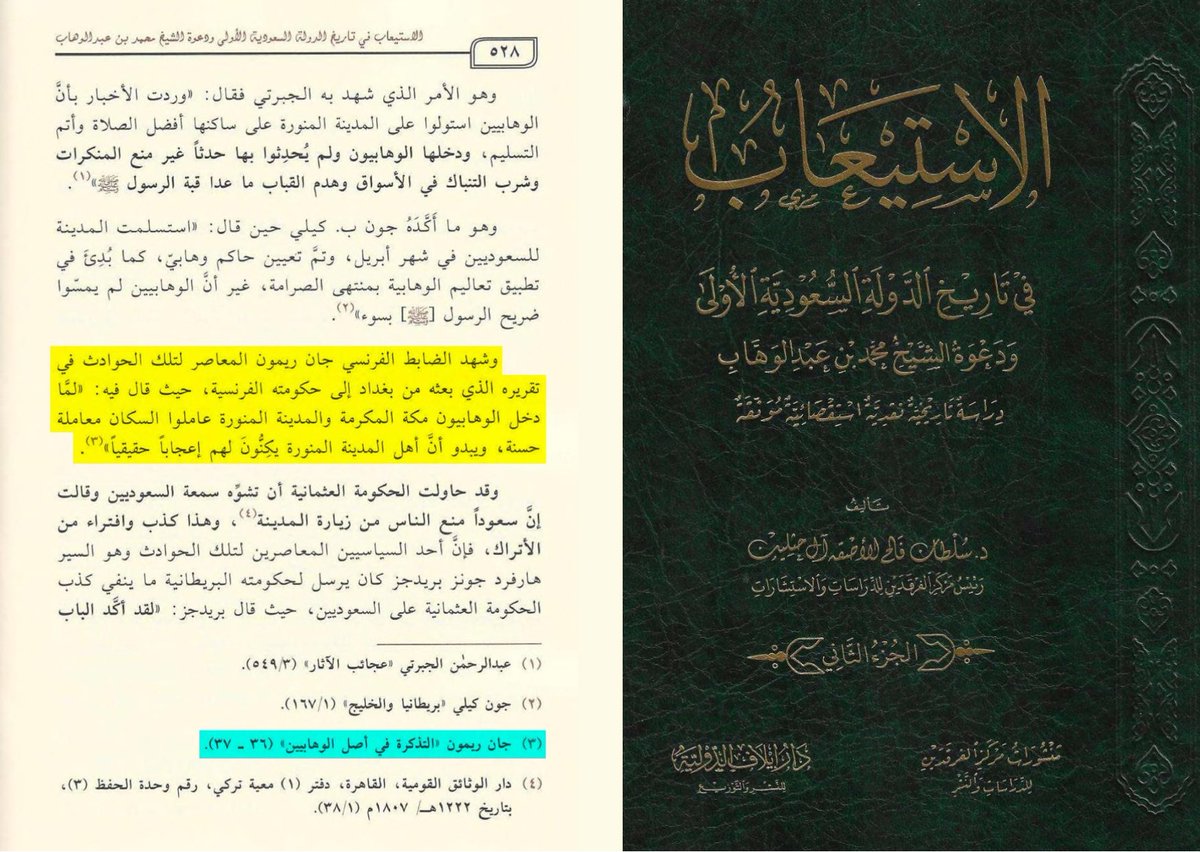 الاستيعاب في تاريخ الدولة السعودية الأولى ودعوة الشيخ محمد بن عبدالوهاب
٥٢٨
وهو الأمر الذي شهد به الجبرتي فقال: «وردت الأخبار بأنَّ
الوهابيين استولوا على المدينة المنورة على ساكنها أفضل الصلاة وأتم
التسليم، ودخلها الوهابيون ولم يُحدِثوا بها حدثاً غير منع المنكرات
وشرب التنباك في الأسواق وهدم القباب ما عدا قبة الرسول ﷺ»(١).
وهو ما أَكَّدَهُ جون ب. كيلي حين قال: «استسلمت المدينة
للسعوديين في شهر أبريل، وتمَّ تعيين حاكم وهابيّ، كما بُدِئَ في
تطبيق تعاليم الوهابية بمنتهى الصرامة، غير أنَّ الوهابيين لم يمسّوا
ضريح الرسول [ﷺ] بسوء»(٢).
وشهد الضابط الفرنسي جان ريمون المعاصر لتلك الحوادث في
تقريره الذي بعثه من بغداد إلى حكومته الفرنسية، حيث قال فيه: «لمَّا
دخل الوهابيون مكة المكرمة والمدينة المنورة عاملوا السكان معاملة
حسنة، ويبدو أنَّ أهل المدينة المنورة يكِنُّونَ لهم إعجاباً حقيقياً»(٣).
وقد حاولت الحكومة العثمانية أن تشوِّه سمعة السعوديين وقالت
إنَّ سعوداً منع الناس من زيارة المدينة(٤)، وهذا كذب وافتراء من
الأتراك، فإنَّ أحد السياسيين المعاصرين لتلك الحوادث وهو السير
هارفرد جونز بريدجز كان يرسل لحكومته البريطانية ما ينفي كذب
الحكومة العثمانية على السعوديين، حيث قال بريدجز: «لقد أكَّد الباب
(١) عبدالرحمٰن الجبرتي «عجائب الآثار» (٥٤٩/٣).
(٢) جون كيلي «بريطانيا والخليج» (١٦٧/١).
(٣) جان ريمون «التذكرة في أصل الوهابيين» (٣٦ ـ ٣٧).
(٤) دار الوثائق القومية، القاهرة، دفتر (١) معية تركي، رقم وحدة الحفظ (٣)،
بتاريخ ١٢٢٢هـ/ ١٨٠٧م (٣٨/١).
الاستيعاب
في تاريخ الدولة السعودية الأولى
ودعوة الشيخ محمد بن عبد الوهاب
دراسة تاريخية نقدية استقصائية موثقة
تأليف
د. سلطان فالح الأصقه آل حثلين
رئيس مركز الفرقدين للدراسات والاستشارات
الجزء الثاني
منشورات مركز الفرقدين
للدراسات والنشر
دار إيلاف الدولية
للنشر والتوزيع